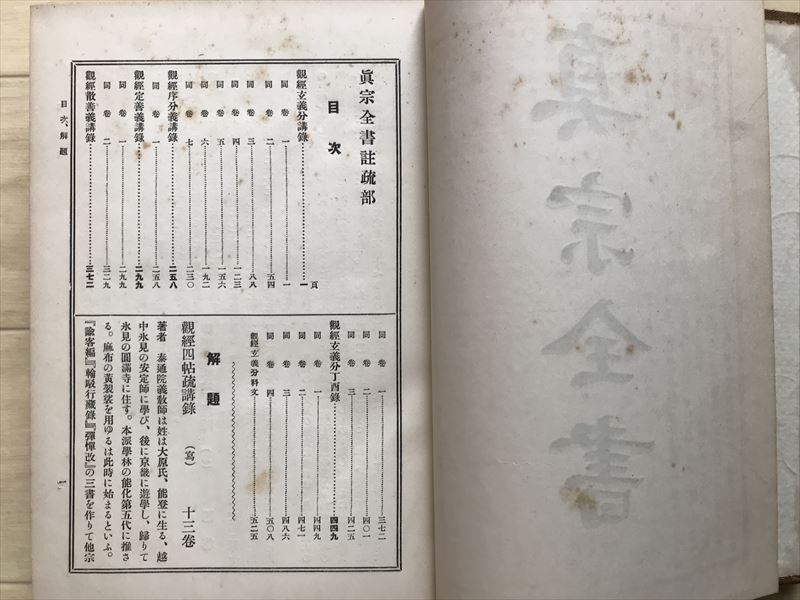 眞宗全書
眞宗全書註疏部
目次
頁
觀經玄義分講錄……………一
同 卷 一……………一
同 卷 二……………五四
同 卷 三……………八八
同 卷 四……………一二三
同 卷 五……………一五六
同 卷 六……………一九二
同 卷 七……………二三〇
觀經序分義講錄……………二五八
同 卷 一……………二五八
觀經定善義講錄……………二九九
同 卷 一……………二九九
同 卷 二……………三二九
觀經散善義講錄……………三七二
同 卷 一……………三七二
同 卷 二……………四〇一
同 卷 三……………四二五
觀經玄義分丁酉錄……………四四九
同 卷 一……………四四九
同 卷 二……………四七一
同 卷 三……………四八六
同 卷 四……………五〇八
觀經玄義分科文……………五二五
解題
觀經四帖疏講錄 (寫) 十三卷
著者 泰通院義敎師は姓は大原氏、能登に生る、越
中氷見の安定師に學び、後に京畿に遊學し、歸りて
氷見の圓滿寺に住す。本派學林の能化第五代に推さ
る。麻布の黃袈裟を用ゆるは此時に始まるといふ。
『諭客編』『輪駁行藏錄』『彈憚改』の三書を作りて他宗
目次、解題
一